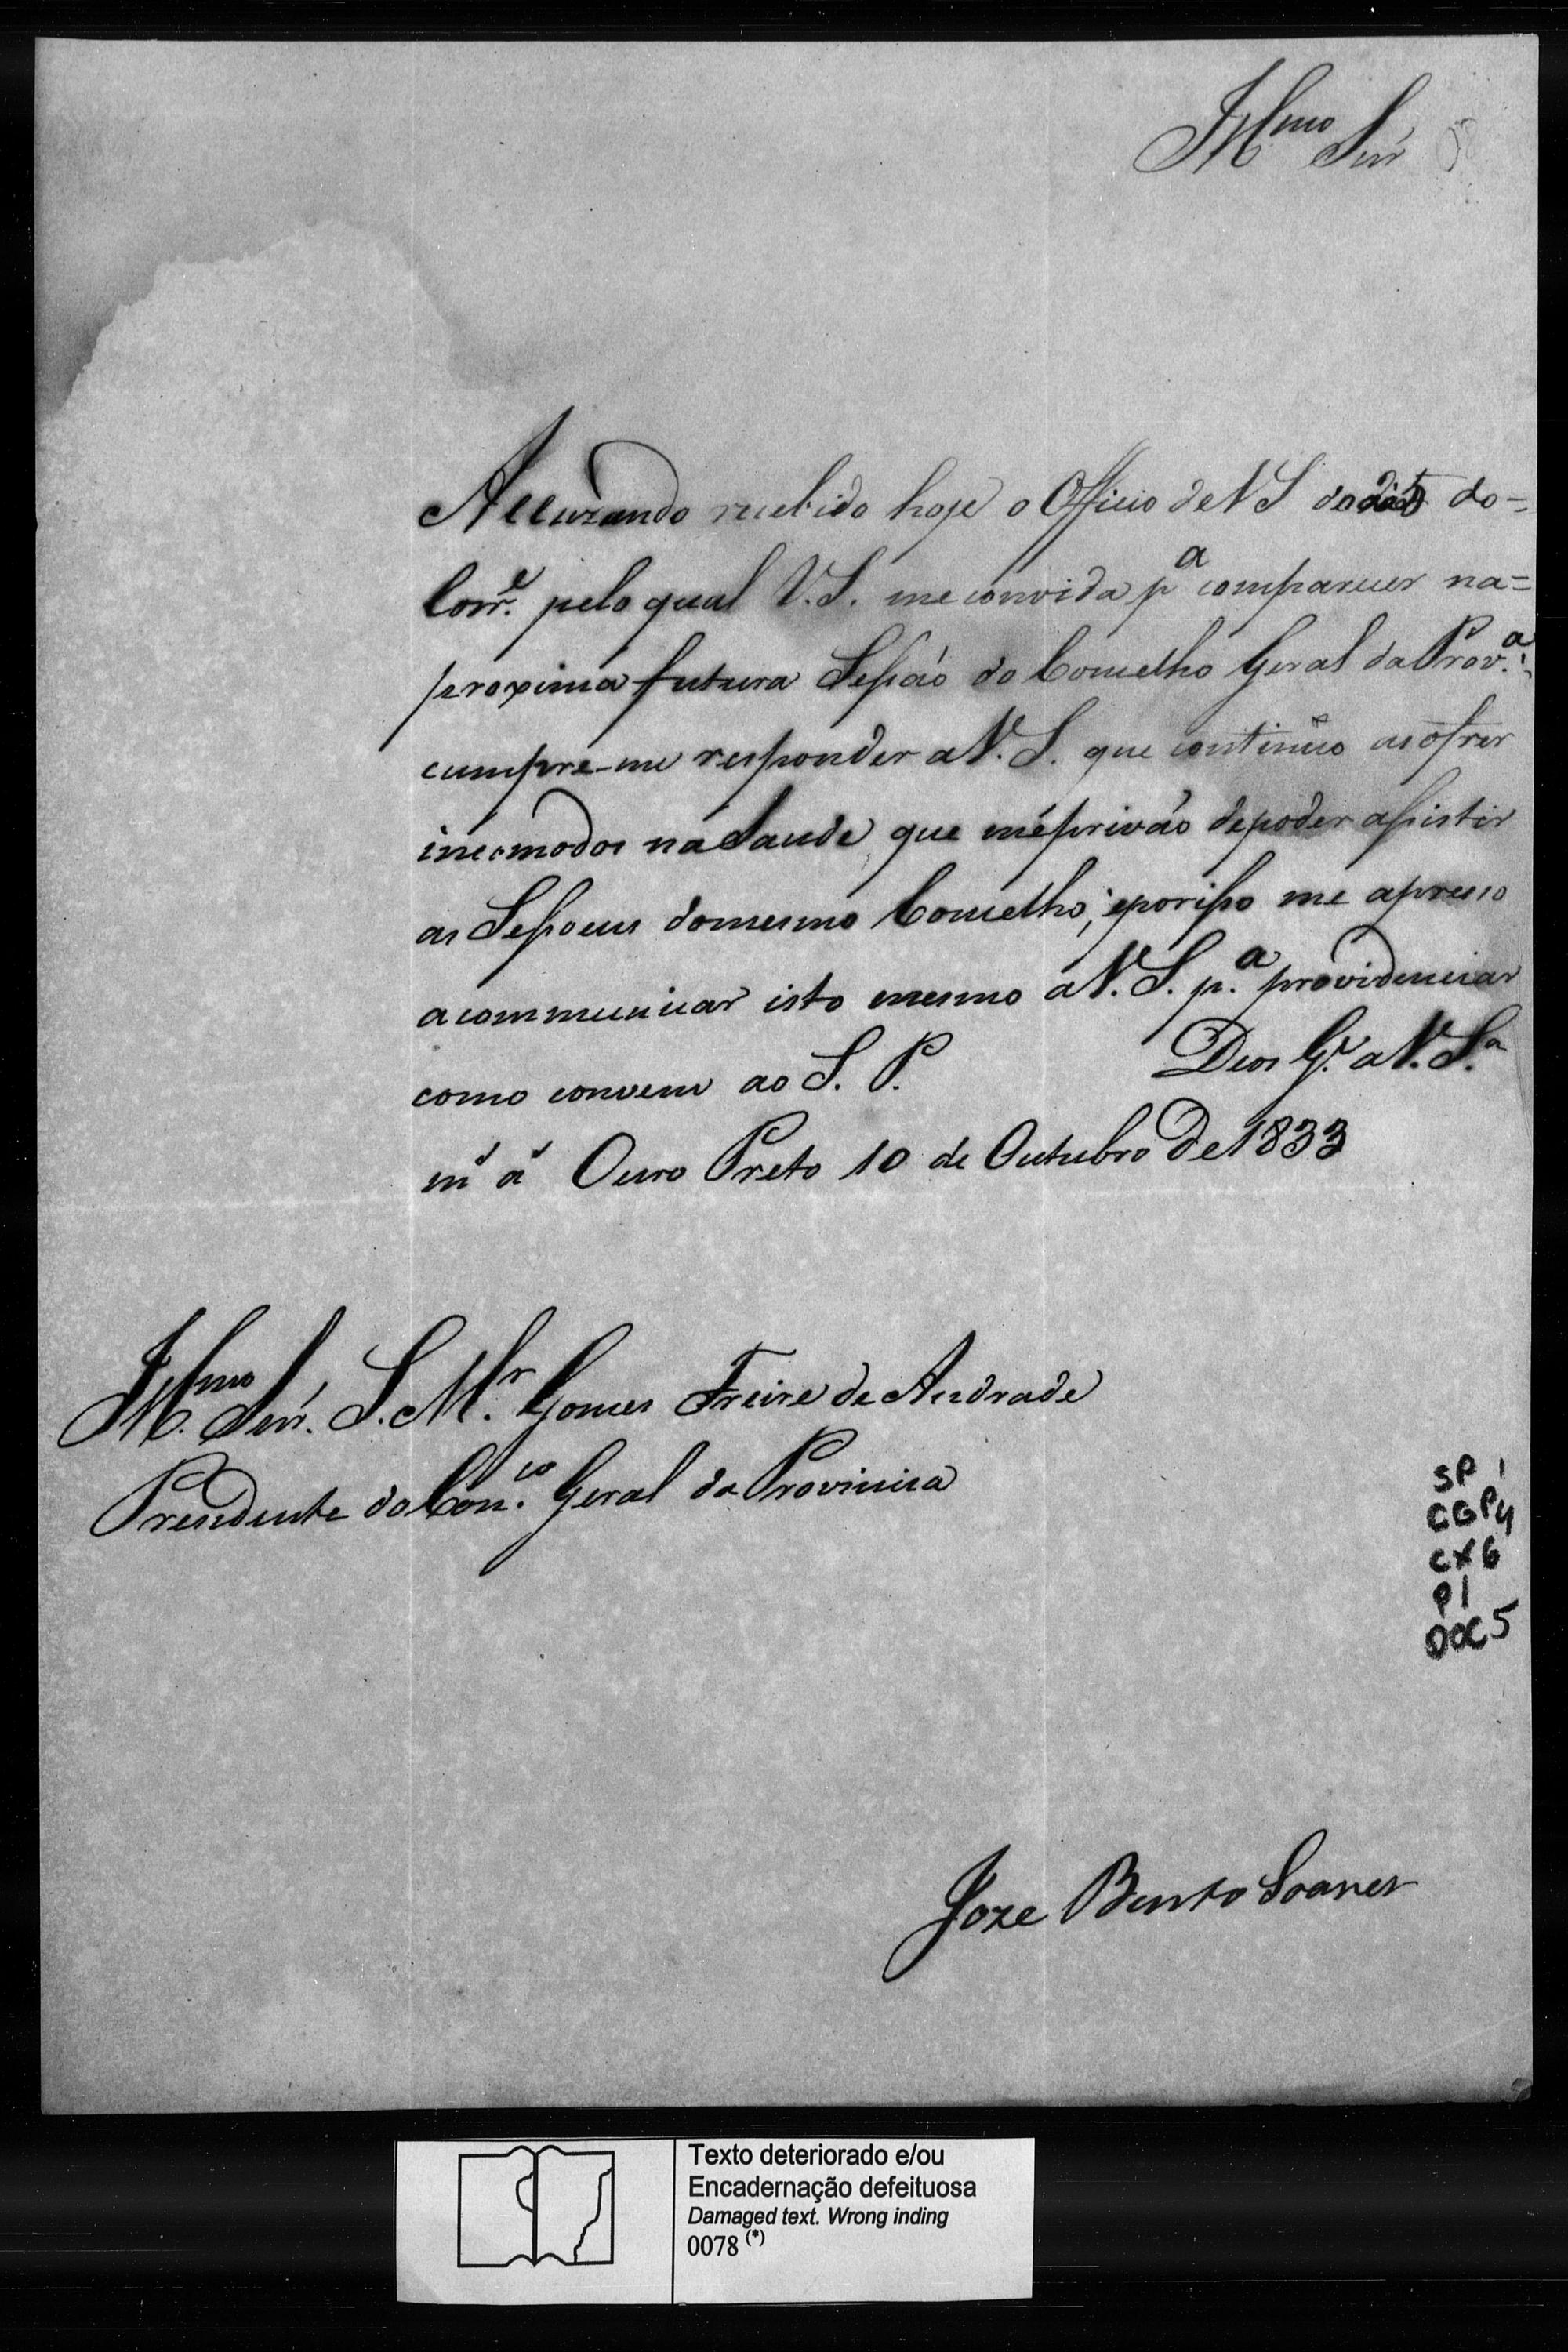 Illmo Snr
Accuzando recebido hoje o Officio de V S do do=
Corr.e pelo qual V.S. me convida pa comparecer na=
proxima futura Sessão do Conselho Geral da Prov.a:
cumpre-me responder a V.S. que continúo a sofrer
incomodos na Saude, que me privão de poder assistir
as Sessoens do mesmo Conselho; e por isso me apresso
a communicar isto mesmo a V.S. p.a providenciar
como convem ao S. P. Deos G.e a V.S.a
m.s a.s Ouro Preto 10 de Outubro de 1833
Illmo. Snr. S. M.r Gomes Freire de Andrade
Prezidente do Con.co Geral da Provincia
SP 1
CGP4
CX6
P1
DOC5
Joze Bento Soares
Texto deteriorado e/ou
Encadernação defeituosa
Damaged text. Wrong inding
0078 (*)